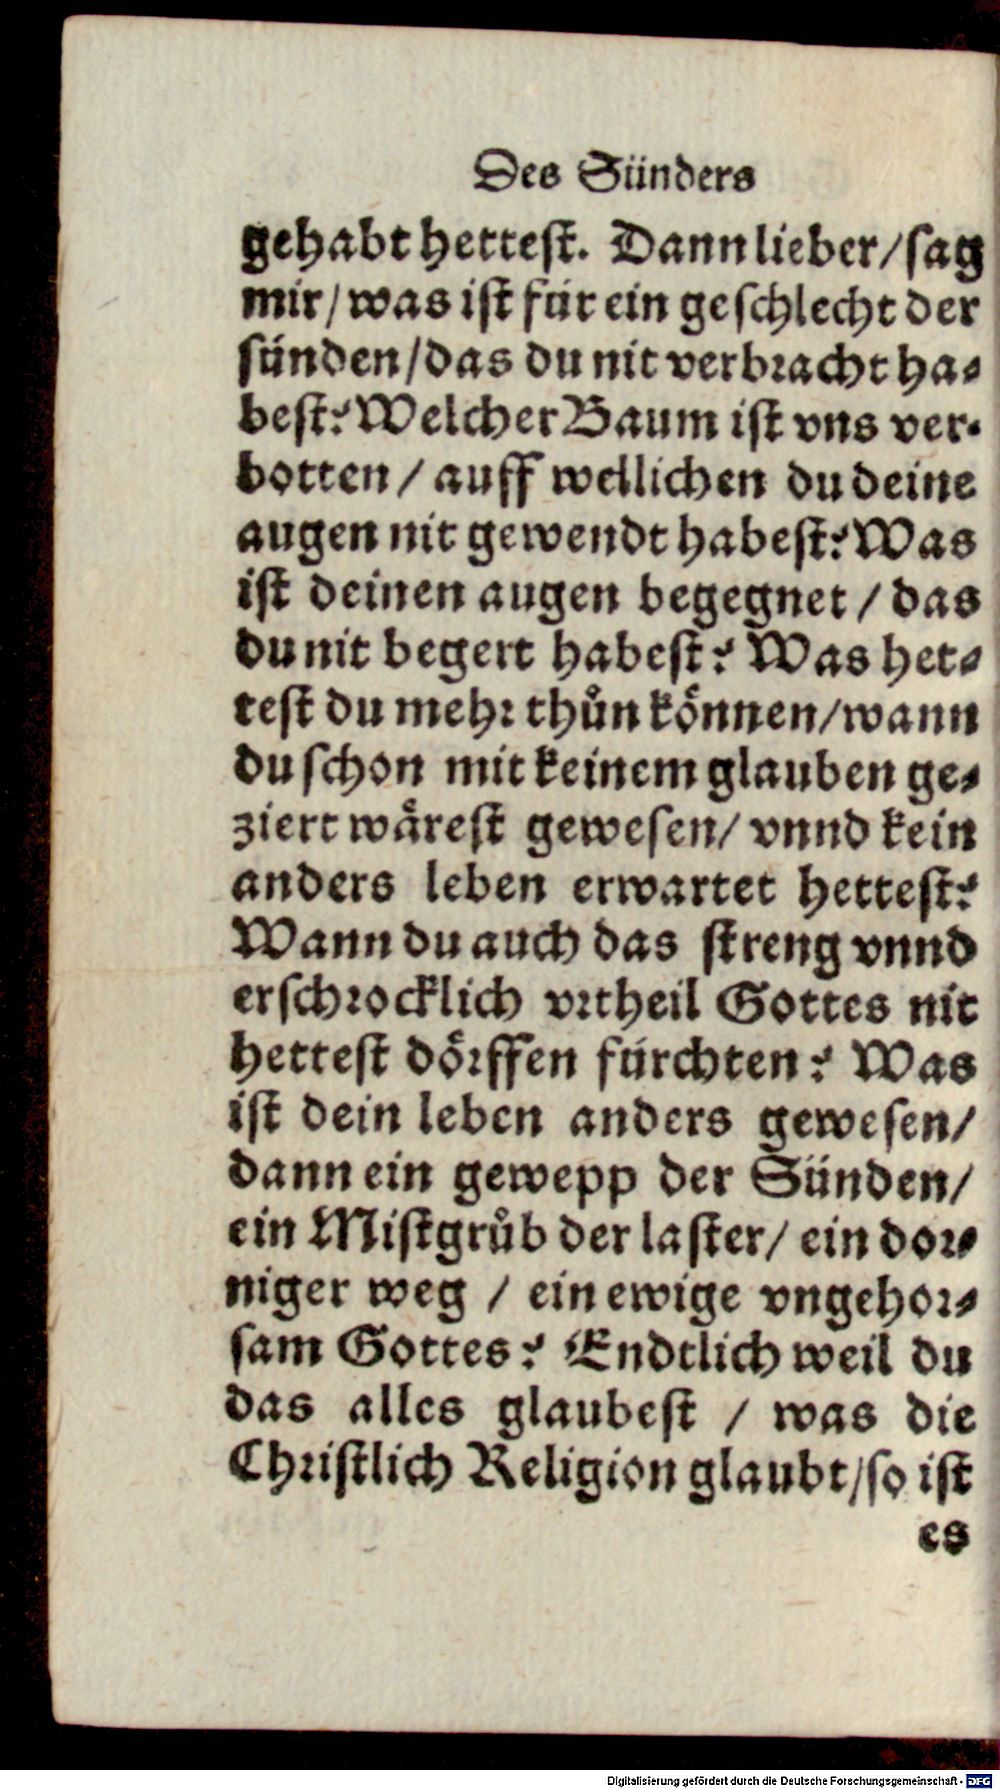 Des Sünders
gehabt hettest. Dann lieber/ sag
mir/ was ist für ein geschlecht der
sünden/ das du nit verbracht ha-
best? Welcher Baum ist vns ver-
botten / auff wellichen du deine
augen nit gewendt habest? Was
ist deinen augen begegnet / das
du nit begert habest? Was het-
test du mehr thůn können/ wann
du schon mit keinem glauben ge-
ziert wårest gewesen/ vnnd kein
anders leben erwartet hettest?
Wann du auch das streng vnnd
erschrocklich vrtheil Gottes nit
hettest dörffen fürchten? Was
ist dein leben anders gewesen/
dann ein gewepp der Sünden/
ein Mistgrůb der laster/ ein dor-
niger weg / ein ewige vngehor-
sam Gottes? Endtlich weil du
das alles glaubest / was die
Christlich Religion glaubt/ so ist
es
Digitalisierung gefördert durch die Deutsche Forschungsgemeinschaft - DFG